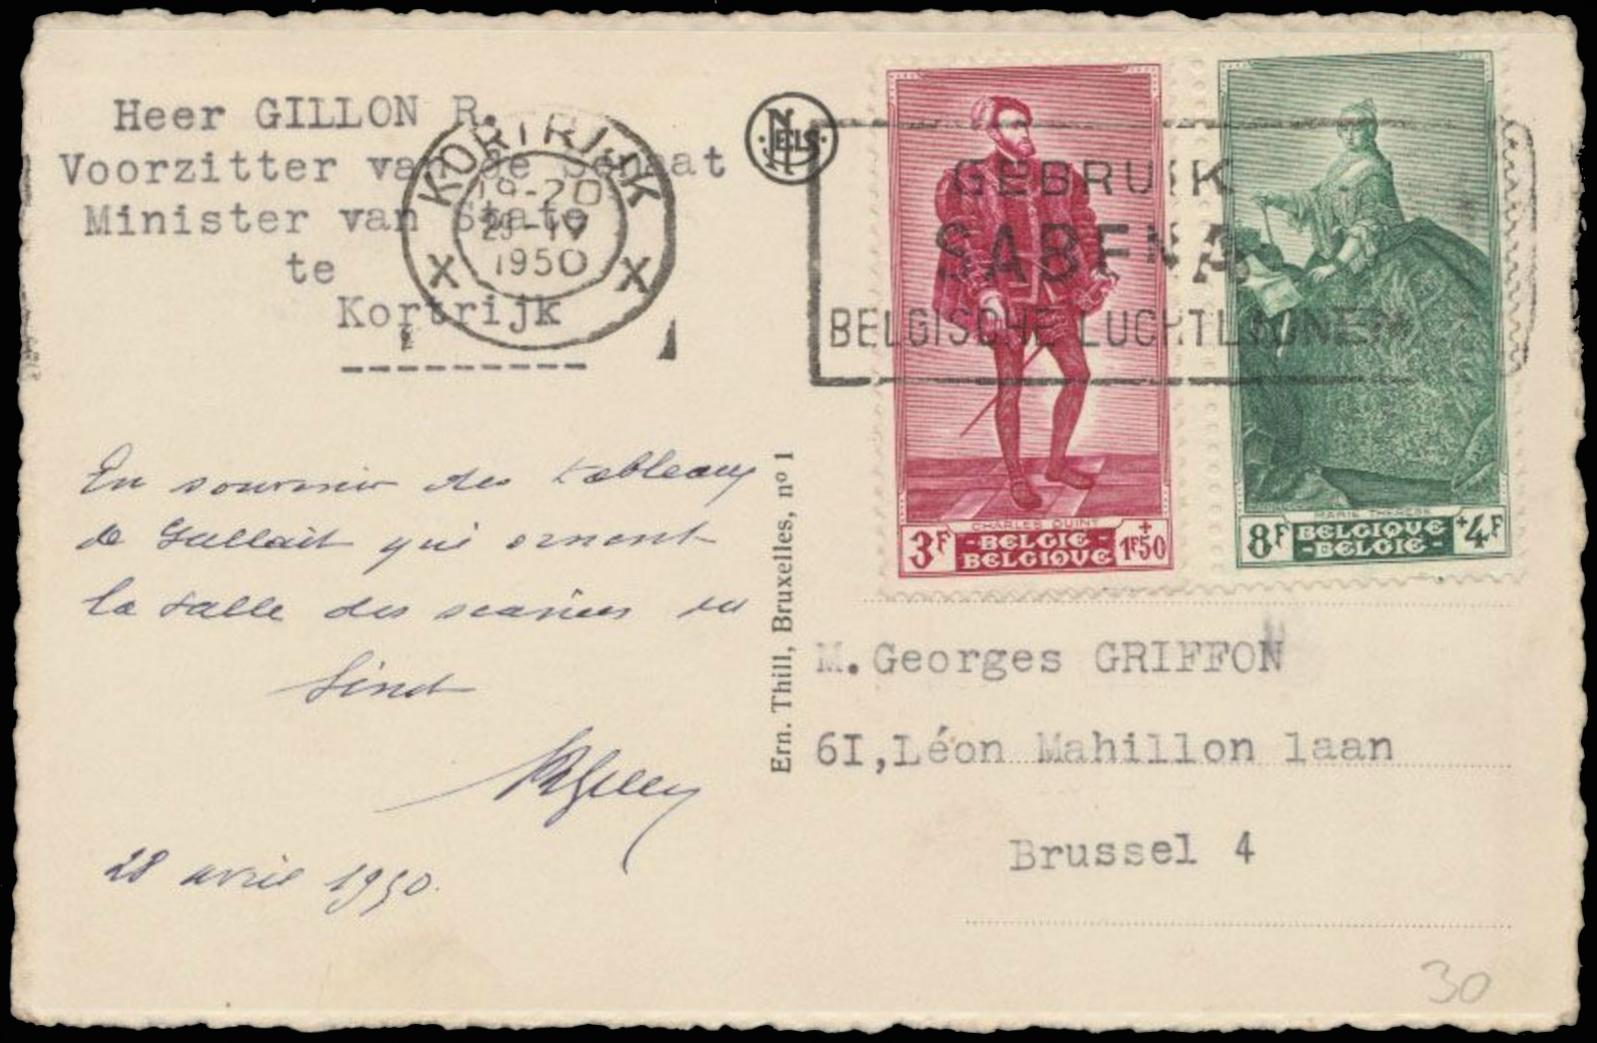 Heer GILLON R.
Voorzitter van de Senaat
Minister van State
te
Kortrijk
KORTRIJK
19-20
IV
1950
X X
NELS
GEBRUIK
SABENA
BELGISCHE LUCHTLIJNEN
CHARLES QUINT
3F -BELGIE- BELGIQUE + 1F50
MARIE-THÉRÈSE
8F BELGIQUE -BELGIE- +4F
En souvenir des tableaux
de Gallait qui ornent
la salle des séances du
Sénat
28 avril 1950.
Ern. Thill, Bruxelles, nº 1
M.Georges GRIFFON
6I,Léon Mahillon laan
Brussel 4
30